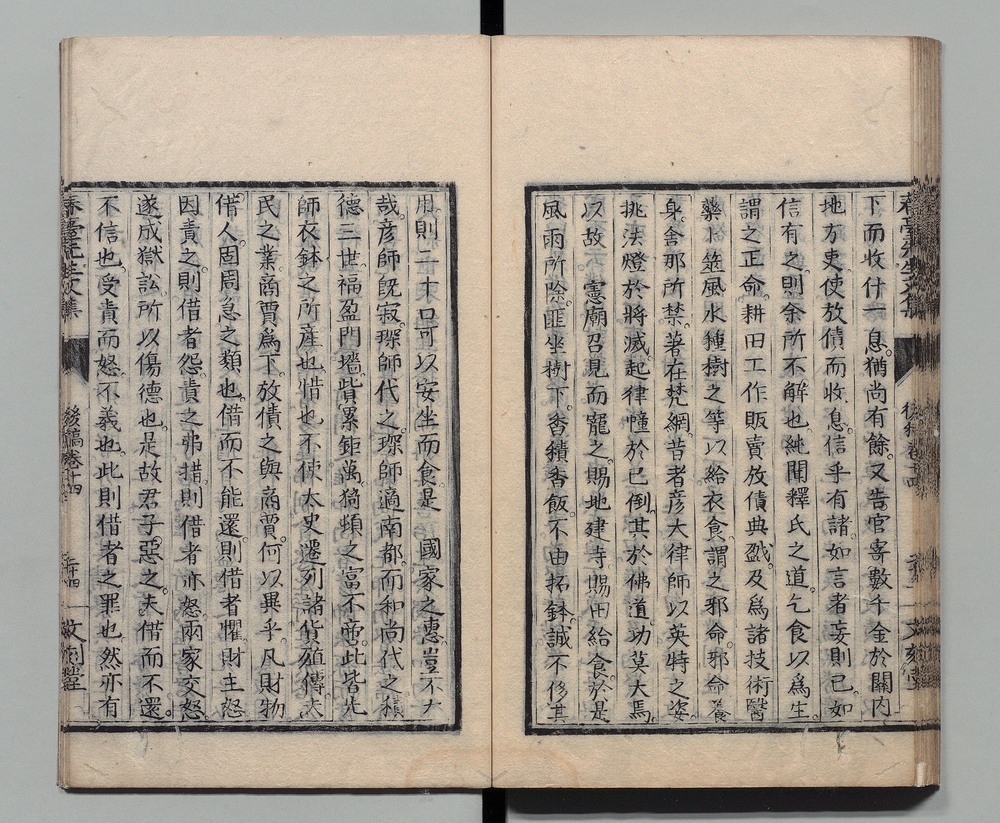 下而收什一息。猶尚有餘。又告官寄數千金於關内
地方吏使放債而收息。信乎有諸。如言者妄則已。如
信有之。則余所不解也。純聞釋氏之道。乞食以爲生。
謂之正命。耕田工作販賣放債典盛。及爲諸技術醫
藥卜筮風水種樹之等。以給衣食。謂之邪命。邪命養
身。舍那所禁。著在梵網。昔者彦大律師以英特之姿。
挑法燈於將滅。起律幢於已倒。其於佛道功莫大焉。
以故 憲廟召見而寵之。賜地建寺。賜田給食。於是
風雨所除。匪坐樹下。香積香飯。不由拓鉢。誠不侈其
用。則二十口可以安坐而食。是 國家之惠。豈不大
哉。彦師既寂。琛師代之。琛師適南都。而和尚代之。積
德三世。福盈門墻。貲累鉅萬。猗頓之富不啻。此皆先
師衣鉢之所産也。惜也。不使太史遷列諸貨殖傳。夫
民之業。商賈爲下。放債之與商賈。何以異乎。凡財物
借人。固周急之類也。借而不能還。則借者懼。財主怒
因責之。則借者怨。責之弗措。則借者亦怒。兩家交怒。
遂成獄訟。所以傷德也。是故君子惡之。夫借而不還。
不信也。受責而怒。不義也。此則借者之罪也。然亦有
春臺先生文集 後稿卷十四 二十四 文刻堂